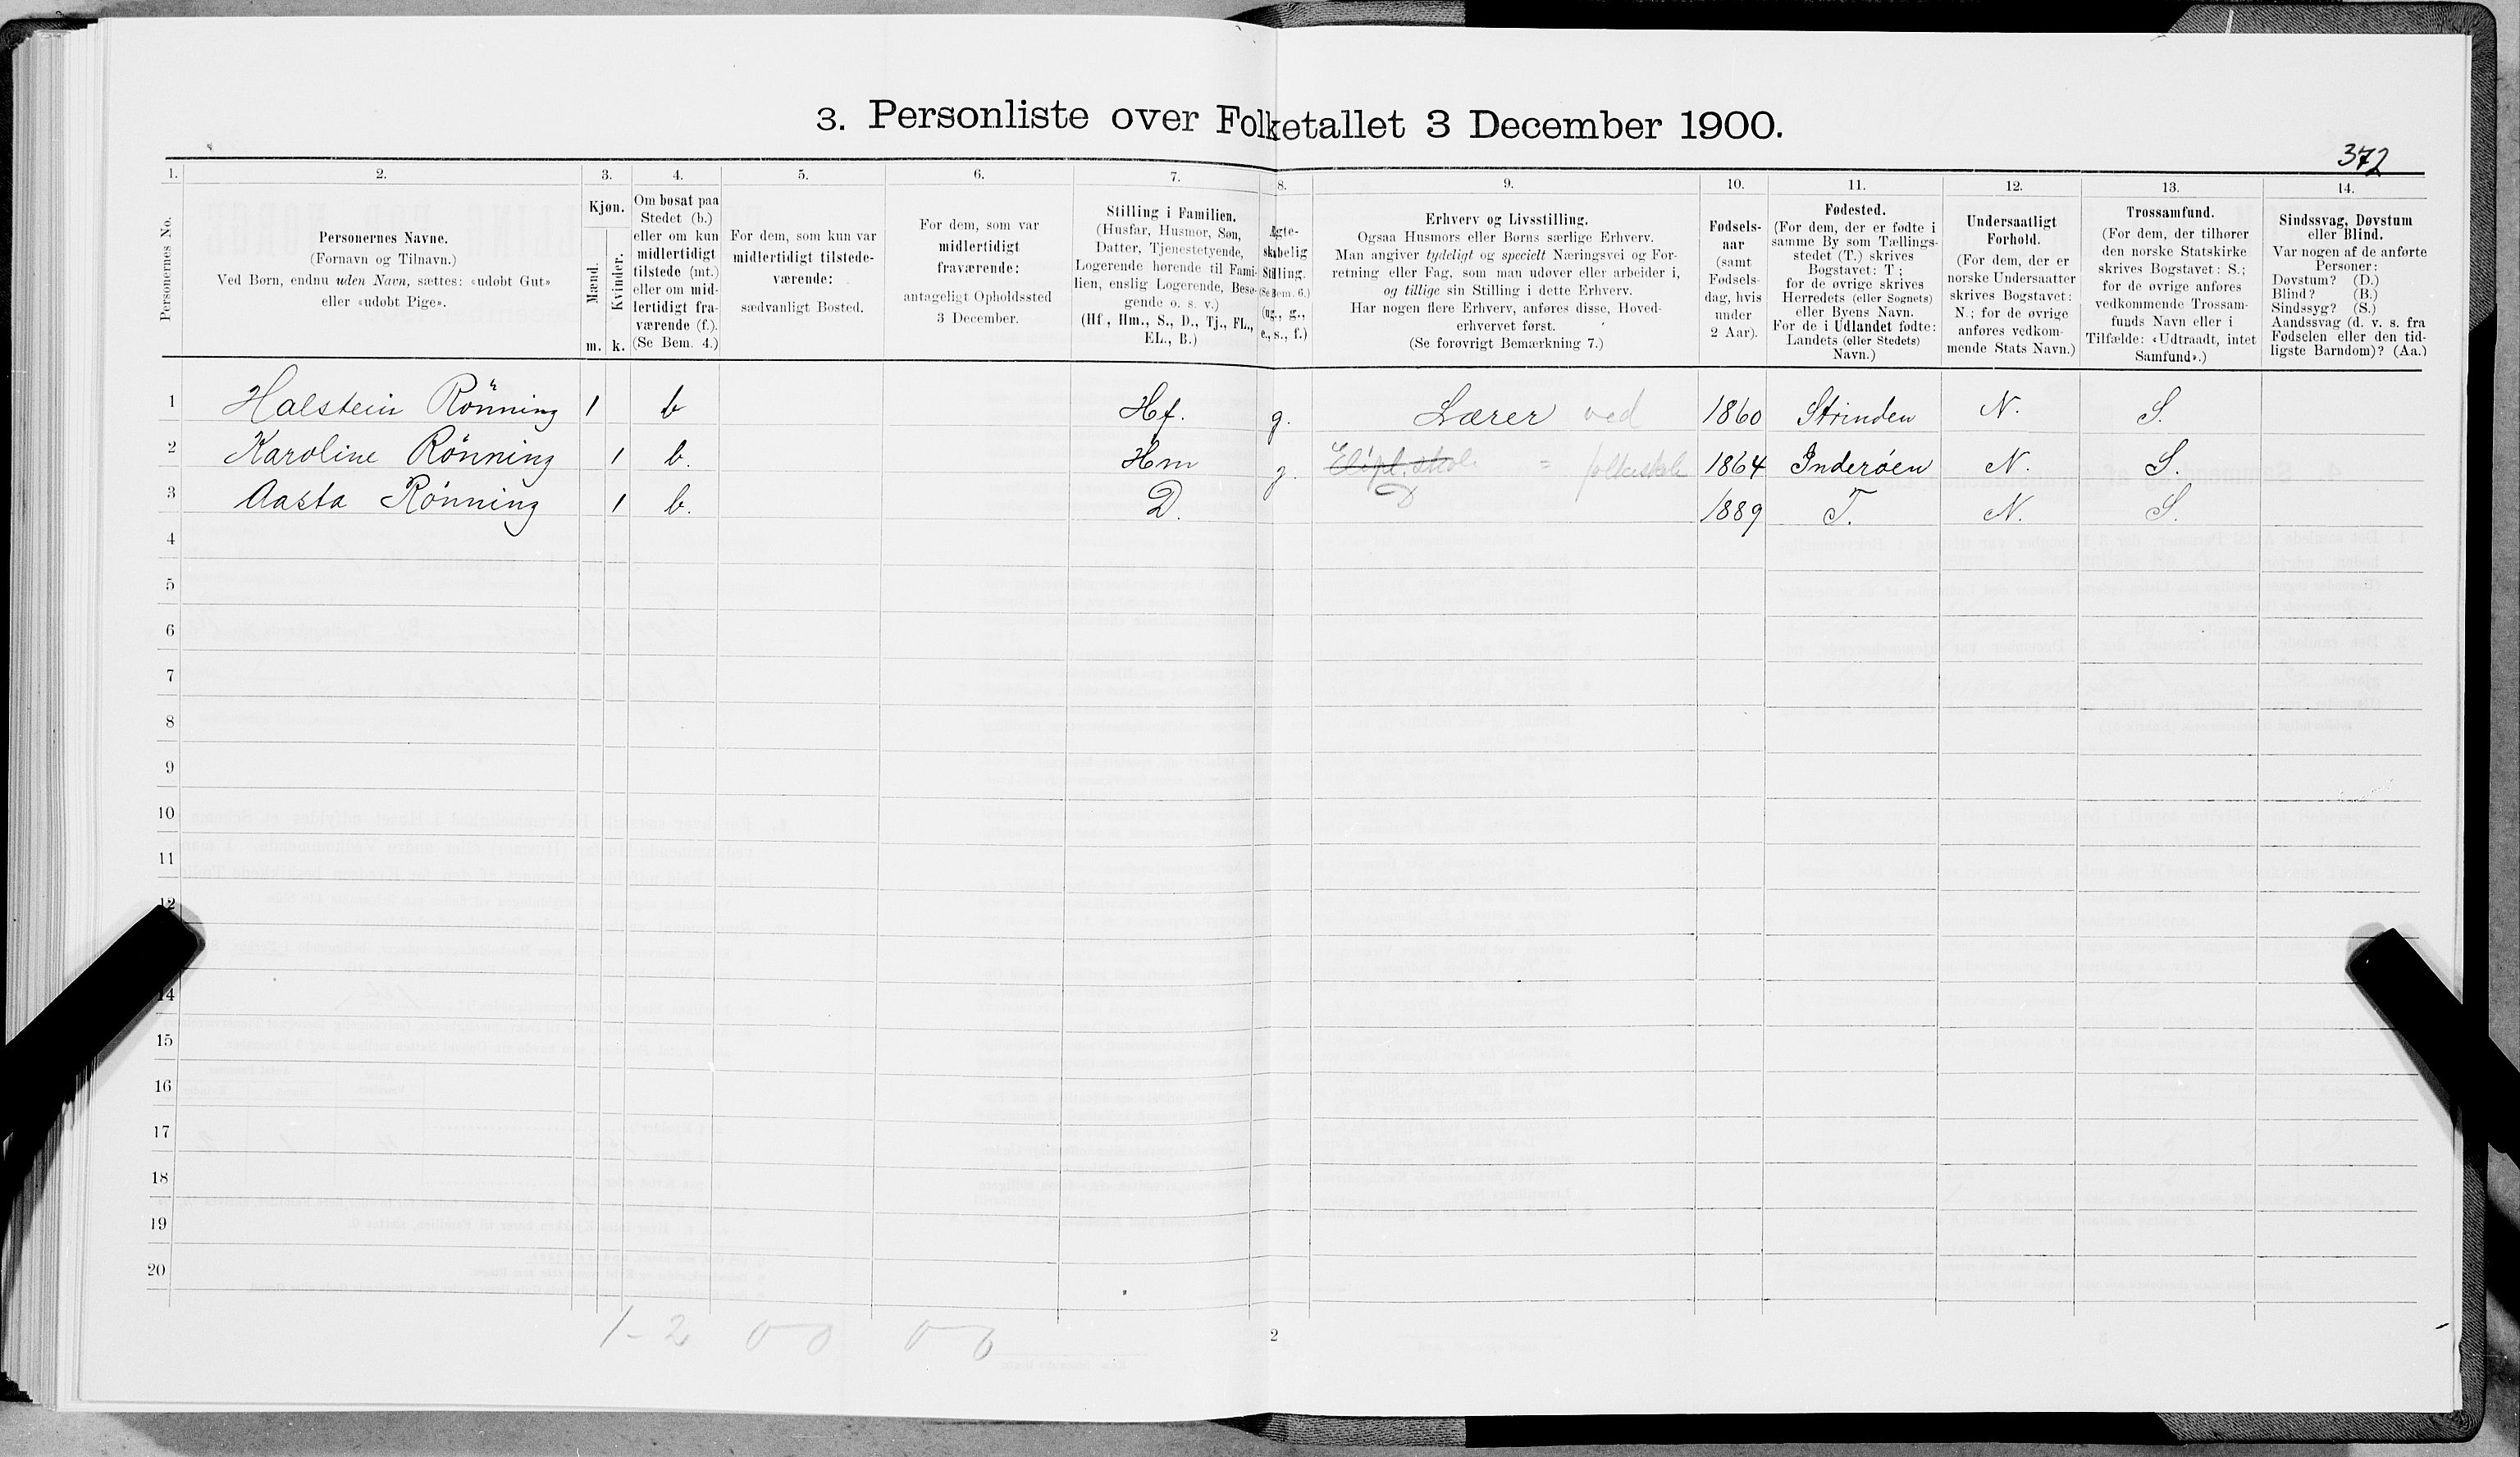 3. Personliste over Folketallet 3 December 1900.
372
1. 2. 3. 4. 5. 6. 7. 8. 9. 10. 11. 12. 13. 14.
Personernes No.
Personernes Navne.
(Fornavn og Tilnavn.)
Ved Børn, endnu uden Navn, sættes: «udøbt Gut»
eller «udøbt Pige».
Kjøn.
Mænd.
Kvinder.
m. k.
Om bosat paa
Stedet (b.)
eller om kun
midlertidigt
tilstede (mt.)
eller om mid-
lertidigt fra-
værende (f.).
(Se Bem. 4.)
For dem, som kun var
midlertidigt tilstede-
værende:
sædvanligt Bosted.
For dem, som var
midlertidigt
fraværende:
antageligt Opholdssted
3 December.
Stilling i Familien.
(Husfar, Husmor, Søn,
Datter, Tjenestetyende,
Logerende hørende til Fami-
lien, enslig Logerende, Besø-
gende o. s. v.)
(Hf., Hm., S., D., Tj., FL.,
EL., B.)
Ægte-
skabelig
Stilling.
(Se Bem. 6.)
(ug., g.,
e., s., f.)
Erhverv og Livsstilling.
Ogsaa Husmors eller Børns særlige Erhverv.
Man angiver tydeligt og specielt Næringsvei og For-
retning eller Fag, som man udøver eller arbeider i,
og tillige sin Stilling i dette Erhverv.
Har nogen flere Erhverv, anføres disse, Hoved-
erhvervet først.
(Se forøvrigt Bemærkning 7.)
Fødsels-
aar
(samt
Fødsels-
dag, hvis
under
2 Aar).
Fødested.
(For dem, der er fødte i
samme By som Tællings-
stedet (T.) skrives
Bogstavet: T;
for de øvrige skrives
Herredets (eller Sognets)
eller Byens Navn.
For de i Udlandet fødte:
Landets (eller Stedets)
Navn.)
Undersaatligt
Forhold.
(For dem, der er
norske Undersaatter
skrives Bogstavet:
N.; for de øvrige
anføres vedkom-
mende Stats Navn.)
Trossamfund.
(For dem, der tilhører
den norske Statskirke
skrives Bogstavet: S.;
for de øvrige anføres
vedkommende Trossam-
funds Navn eller i
Tilfælde: «Udtraadt, intet
Samfund».)
Sindssvag, Døvstum
eller Blind.
Var nogen af de anførte
Personer:
Døvstum? (D.)
Blind? (B.)
Sindssyg? (S.)
Aandssvag (d. v. s. fra
Fødselen eller den tid-
ligste Barndom)? (Aa.)
1 Halstein Rönning 1 b Hf. g. Lærer ved 1860 Strinden N. S.
2 Karoline Rönning 1 b. Hm g. skole = folkeskole 1864 Inderøen N. S.
3 Aasta Rönning 1 b. D. D 1889 T. N. S.
4
5
6
7
8
9
10
11
12
14
15
16
17
18
19
20
1 - 2 0 0 0 0
2